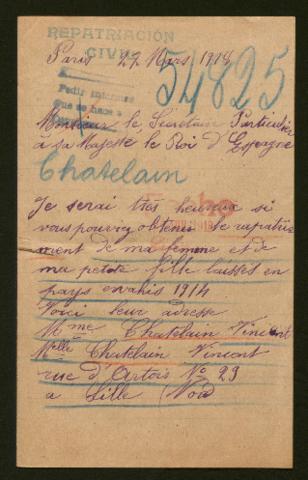 REPATRIACIÓN
CIVIL
Paris 27 Mars 1918
54825
Pedir informes
que se hace a
Monsieur le Sécrétaire Particulier
à sa Majesté le Roi d'Espagne
Chatelain
Je serai très heureux si
vous pourrez obtenir le rapatrie
ment de ma femme et de
ma petite fille laissés en
pays envahis 1914
Voici leur adresse
Mme Chatelain Vincent
Melle Chatelain Vincent
rue d'Artois No 29
a Lille (Nord